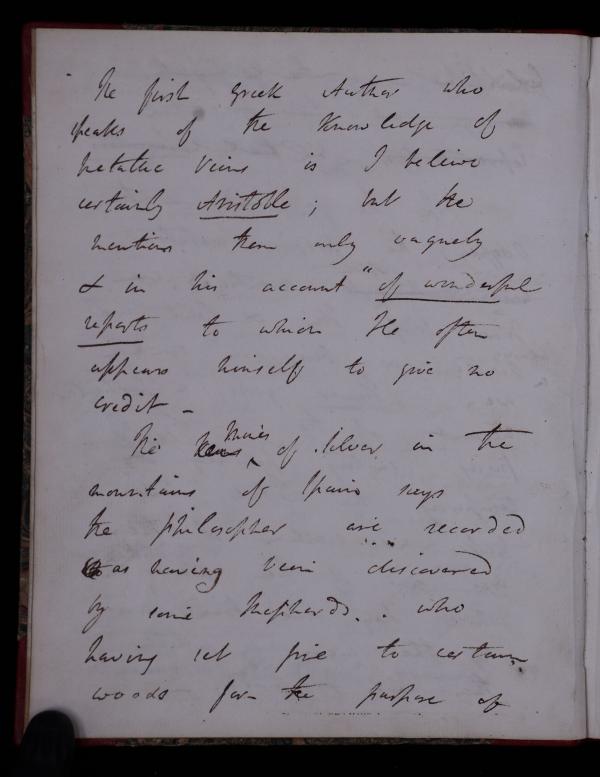 The first Greek Author who
speaks of the Knowledge of
metallic Veins is I believe
certainly Aristotle; but he
mentions them only vaguely
& in his account "of wonderful
reports to which He often
appears himself to give no
credit –
The Veins Mines of Silver in the
mountains of Spain says
the philosopher are recorded
as having been discovered
by some Shepherds.. who
having set fire to certain
woods for the purpose of